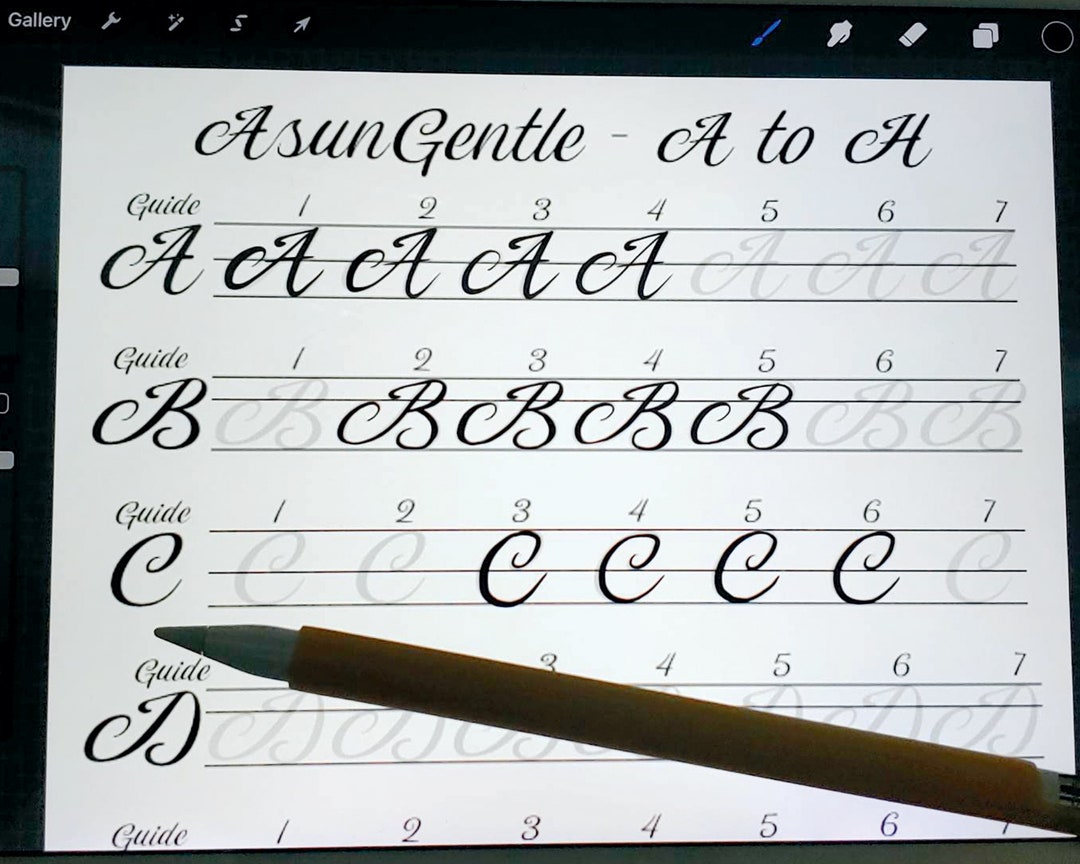 Gallery
AsunGentle - A to H
Guide 1 2 3 4 5 6 7
A A A A A A A A
Guide 1 2 3 4 5 6 7
B B B B B B B B
Guide 1 2 3 4 5 6 7
C C C C C C C C
Guide 3 4 5 6 7
D D D D D D D D
Guide 1 2 3 4 5 6 7